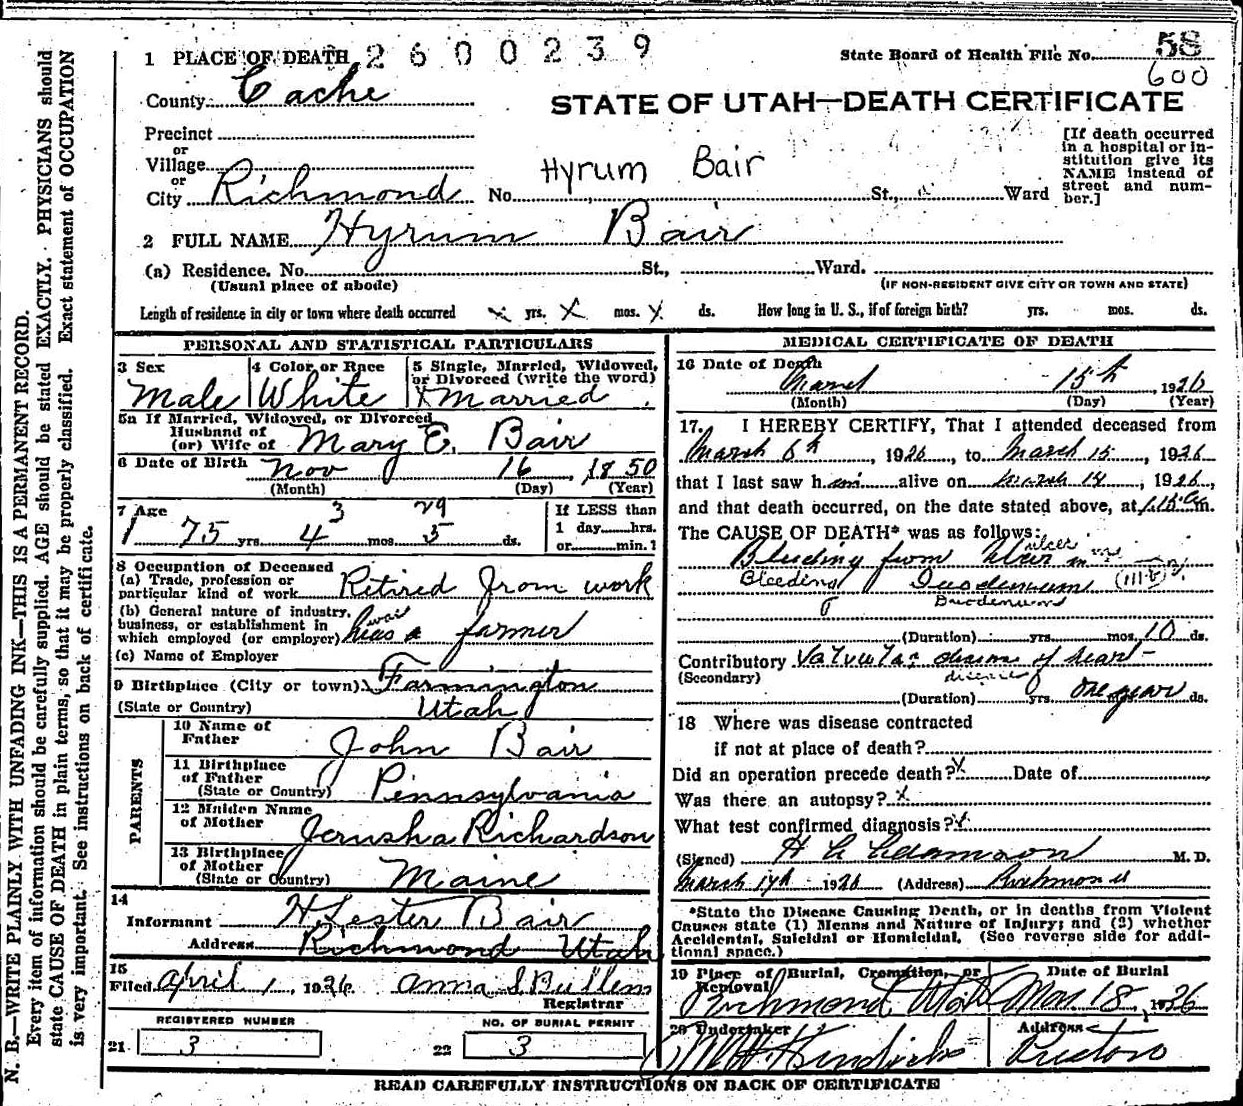 1 PLACE OF DEATH 2600239
State Board of Health File No. 58
600
County Cache
STATE OF UTAH—DEATH CERTIFICATE
Precinct
or
Village
or
City Richmond No. Hyrum Bair St., Ward
[If death occurred
in a hospital or in-
stitution give its
NAME instead of
street and num-
ber.]
2 FULL NAME Hyrum Bair
(a) Residence. No. St., Ward.
(Usual place of abode) (IF NON-RESIDENT GIVE CITY OR TOWN AND STATE)
Length of residence in city or town where death occurred x yrs. x mos. x ds. How long in U. S., if of foreign birth? yrs. mos. ds.
PERSONAL AND STATISTICAL PARTICULARS
3 Sex Male
4 Color or Race White
5 Single, Married, Widowed,
or Divorced (write the word)
x Married
5a If Married, Widowed, or Divorced
Husband of
(or) Wife of Mary E. Bair
6 Date of Birth Nov 16, 1850
(Month) (Day) (Year)
7 Age 3 29
75 yrs. 4 mos. 5 ds.
If LESS than
1 day hrs.
or min.?
8 Occupation of Deceased
(a) Trade, profession or
particular kind of work Retired from work
(b) General nature of industry,
business, or establishment in was
which employed (or employer) a farmer
(c) Name of Employer
9 Birthplace (City or town) Farmington
(State or Country) Utah
PARENTS
10 Name of
Father John Bair
11 Birthplace
of Father
(State or Country) Pennsylvania
12 Maiden Name
of Mother Jerusha Richardson
13 Birthplace
of Mother
(State or Country) Maine
14
Informant H Lester Bair
Address Richmond Utah
15
Filed April 1, 1926 Anna S Bullen
Registrar
REGISTERED NUMBER
21 3
NO. OF BURIAL PERMIT
22 3
MEDICAL CERTIFICATE OF DEATH
16 Date of Death
March 15th 1926
(Month) (Day) (Year)
17. I HEREBY CERTIFY, That I attended deceased from
March 6th, 1926, to March 15, 1926
that I last saw him alive on March 14, 1926,
and that death occurred, on the date stated above, at m.
The CAUSE OF DEATH* was as follows:
ulcer
Bleeding from Ulcer in
Bleeding Duodenum
Duodenum
(Duration) yrs. mos. 10 ds.
Contributory Valvular disease of heart
(Secondary) disease
(Duration) yrs. one year ds.
18 Where was disease contracted
if not at place of death?
Did an operation precede death? x Date of
Was there an autopsy? x
What test confirmed diagnosis? x
(Signed) H C Adamson M. D.
March 17th 1926 (Address) Richmond
*State the Disease Causing Death, or in deaths from Violent
Causes state (1) Means and Nature of Injury; and (2) whether
Accidental, Suicidal or Homicidal. (See reverse side for addi-
tional space.)
19 Place of Burial, Cremation, or
Removal
Richmond, Utah
Date of Burial
Mar 18, 1926
20 Undertaker
W H Hendricks
Address
Preston
READ CAREFULLY INSTRUCTIONS ON BACK OF CERTIFICATE
N. B.—WRITE PLAINLY WITH UNFADING INK—THIS IS A PERMANENT RECORD.
Every item of information should be carefully supplied. AGE should be stated EXACTLY. PHYSICIANS should
state CAUSE OF DEATH in plain terms, so that it may be properly classified. Exact statement of OCCUPATION
is very important. See instructions on back of certificate.